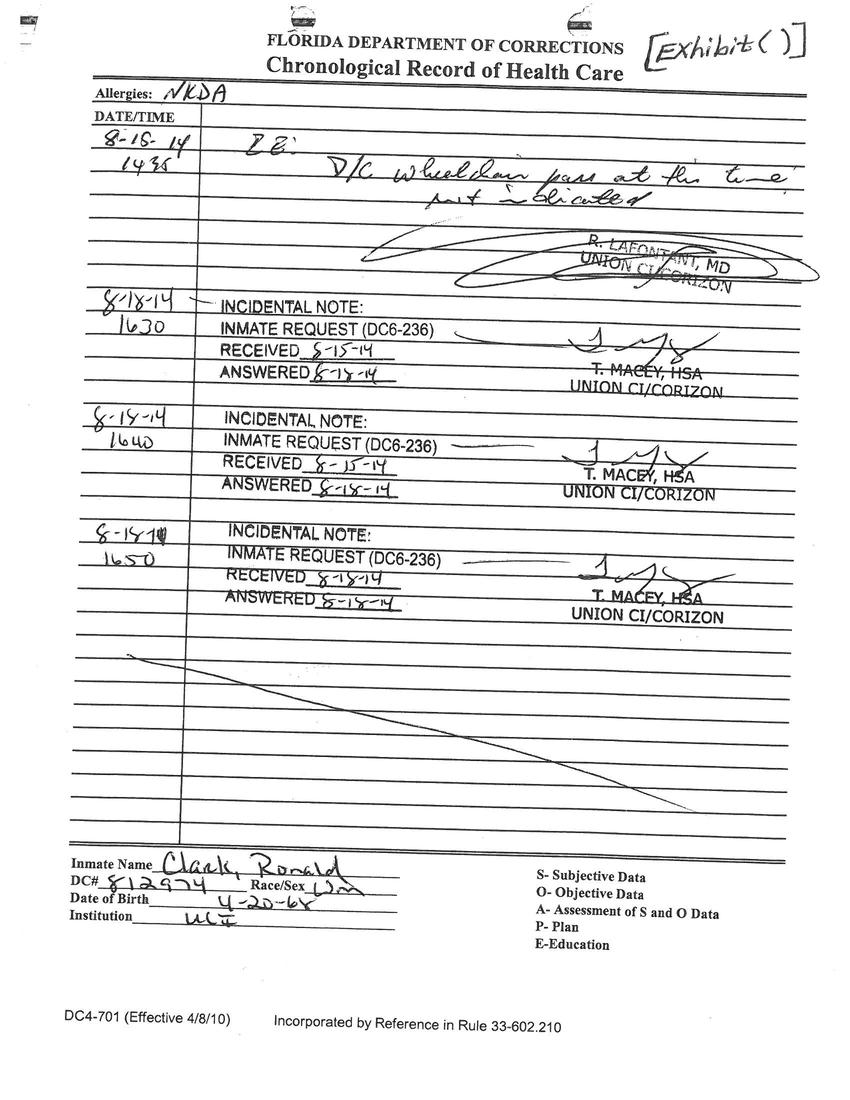 FLORIDA DEPARTMENT OF CORRECTIONS
[Exhibit( )]
Chronological Record of Health Care
Allergies: NKDA
DATE/TIME
8-15-14
1435
D/C wheelchair pass at this time
not indicated
R. LAFONTANT, MD
UNION CI/CORIZON
8-18-14 INCIDENTAL NOTE:
1630 INMATE REQUEST (DC6-236)
RECEIVED 8-15-14
ANSWERED 8-18-14
T. MACEY, HSA
UNION CI/CORIZON
8-18-14 INCIDENTAL NOTE:
1640 INMATE REQUEST (DC6-236)
RECEIVED 8-15-14
ANSWERED 8-18-14
T. MACEY, HSA
UNION CI/CORIZON
8-18-14 INCIDENTAL NOTE:
1650 INMATE REQUEST (DC6-236)
RECEIVED 8-18-14
ANSWERED 8-18-14
T. MACEY, HSA
UNION CI/CORIZON
Inmate Name Clark, Ronald
DC# 812974 Race/Sex Wm
Date of Birth 4-20-68
Institution UCI
S- Subjective Data
O- Objective Data
A- Assessment of S and O Data
P- Plan
E-Education
DC4-701 (Effective 4/8/10) Incorporated by Reference in Rule 33-602.210